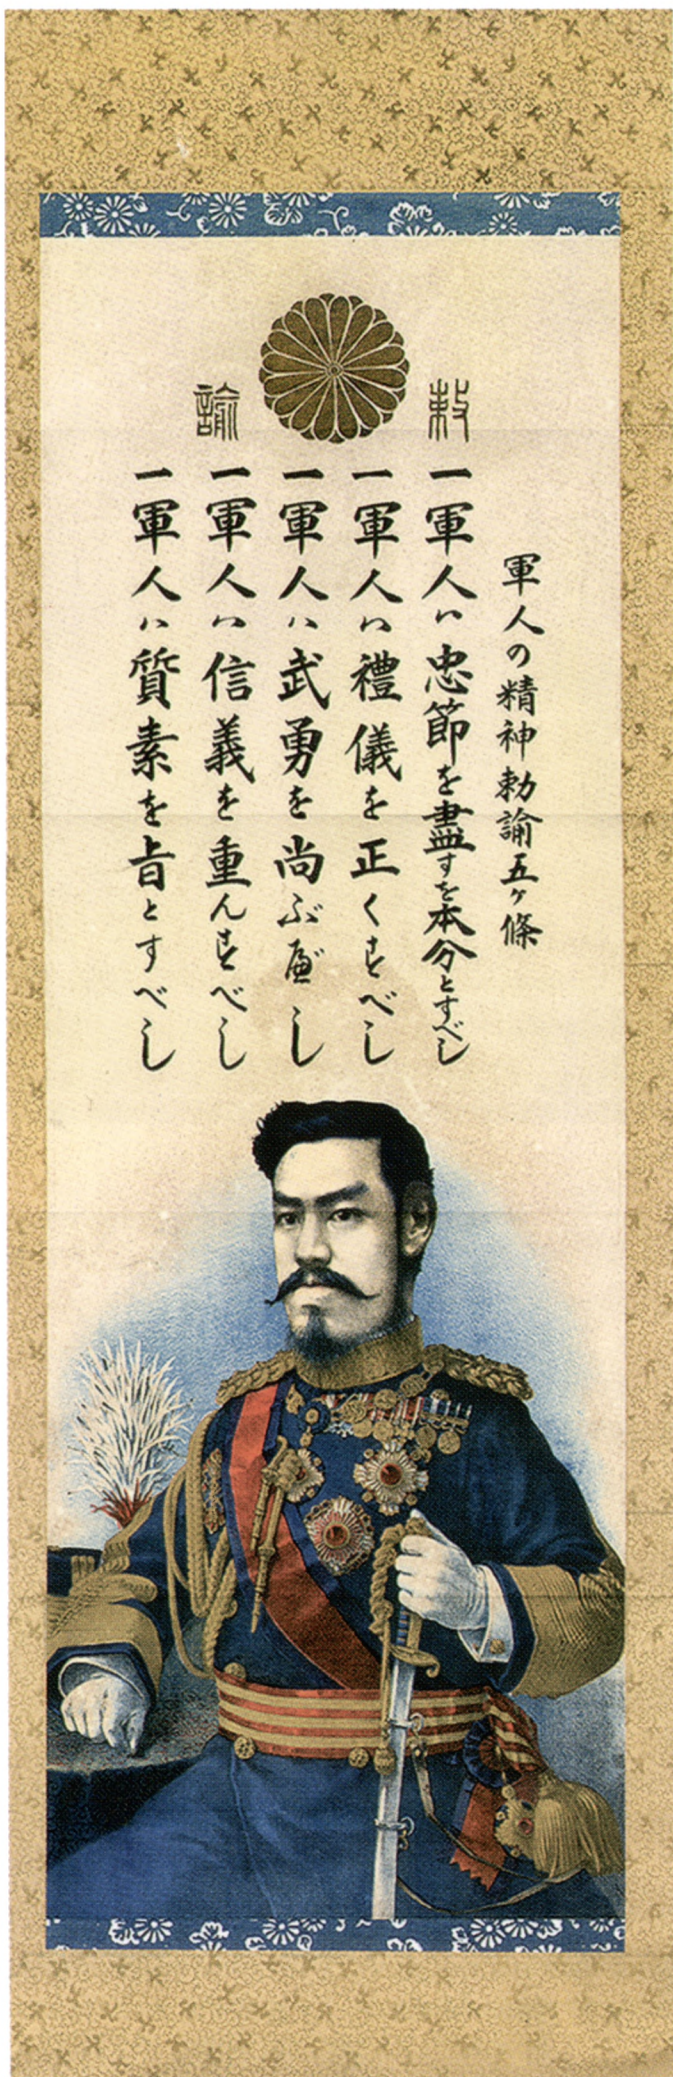 敕諭
軍人の精神勅諭五ヶ條
一軍人ハ忠節を盡すを本分とすべし
一軍人ハ禮儀を正くすべし
一軍人ハ武勇を尚ぶべし
一軍人ハ信義を重んずべし
一軍人ハ質素を旨とすべし